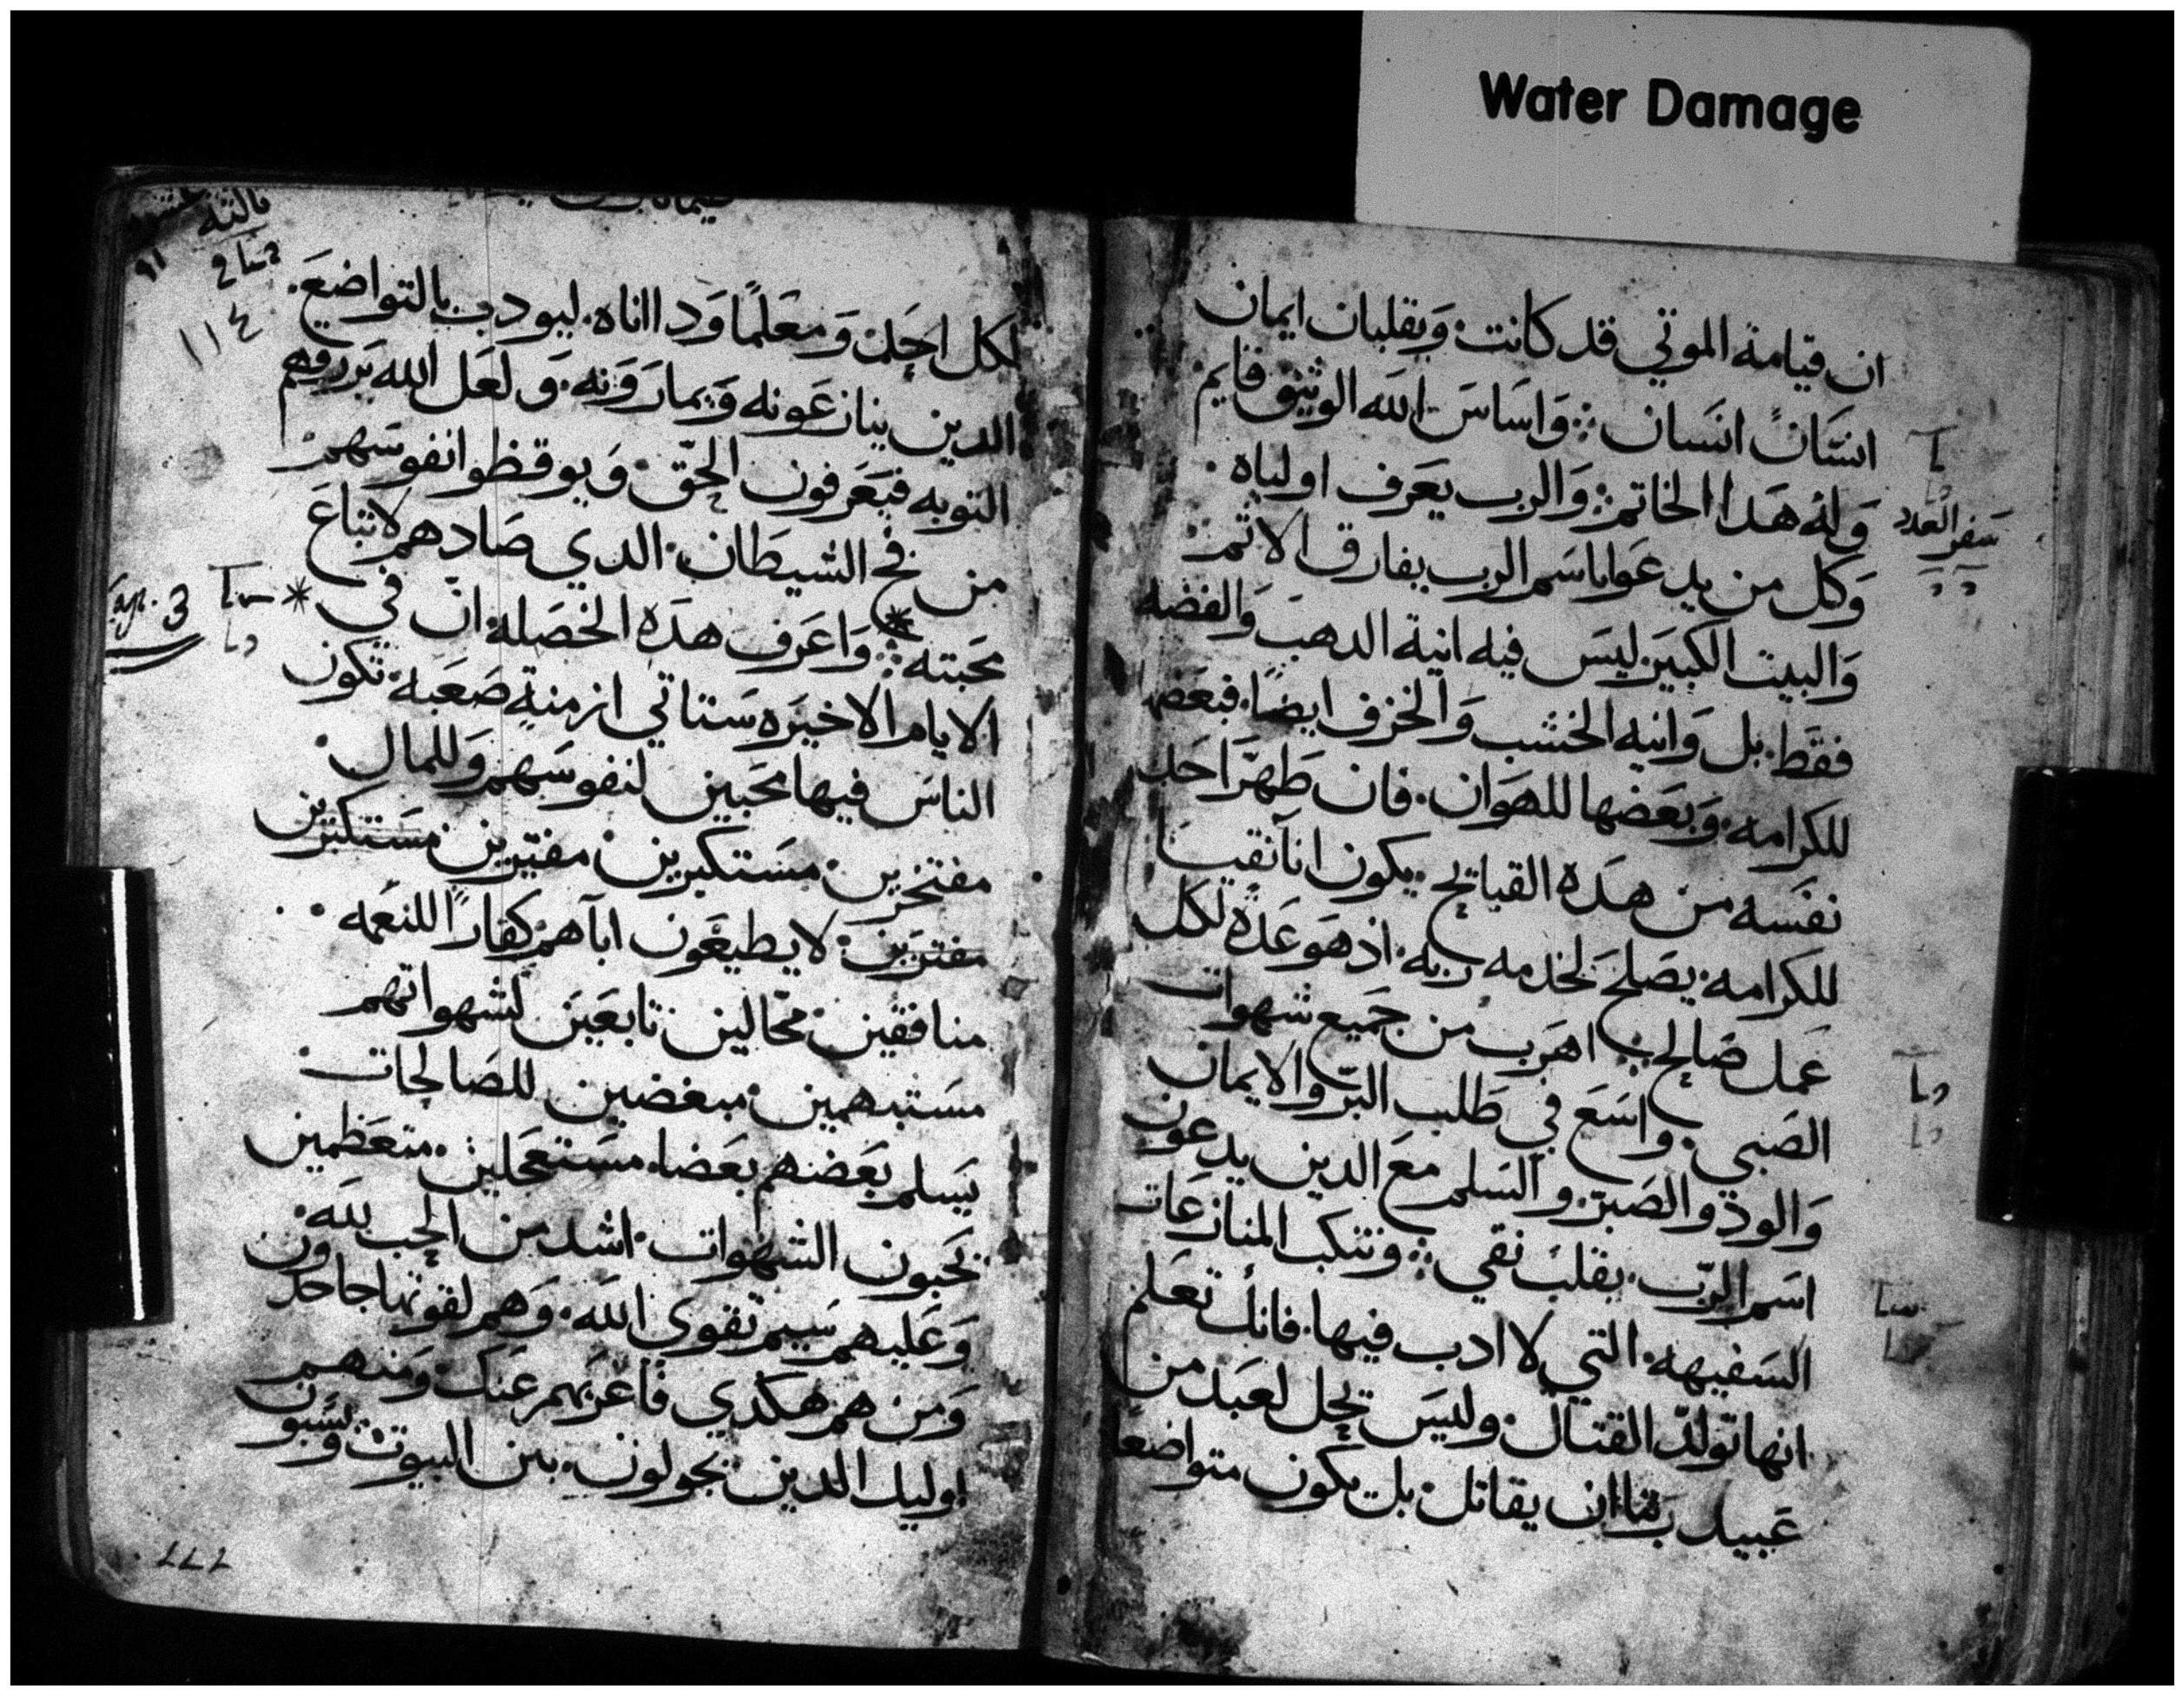 Water Damage
ان قيامة الموتي قد كانت وَيقلبان ايمان
انسَانً انسَان ܀ وَاسَاسَ الله الوثيق قايم
وَله هَدا الخاتم ܀ وَالرب يعَرف اولياه ·
وَكل من يدعَوا باسَم الرب يفارق الاثم
وَالبيت الكبيَر ليسَ فيه انية الدهبَ وَالفضه
فقط · بل وَانيه الخشب وَالخزف ايضًا · فبعَضها
للكرامه · وَبعَضها للهوَان · فان طَهرَّ احَد
نفسَه من هَده القبايح · يكون اناً نقيسًا
للكرامه · يصَلح لخدمه ربه · اذ هوَ عَدة لكل
عَمل صَالح · اهرَب من جَميع شهوات
الصَبي · وَاسَعَ في طَلب البرّ والايمان
وَالود والصَبرَ · والسَلم معَ الدين يدعَون
اسَم الربّ · بقلب نقي ܀ وتنكب المنازعَات
السَفيهه · التي لا ادب فيها · فانك تعَلم
انها توَلدّ القتال · وليسَ يحل لعَبد من
عَبيد ربنا ان يقاتل · بل يكون متواضعًا
سَفر العَدد
لكل احَد · وَمعَلمًا وَدا اناه · ليودب بالتواضعَ ·
الدين ينازعَونه وَيمارَوَنه · وَلعَل الله يَرزقهم
التوبه فيَعَرفون الحَقّ · وَيوقظوا انفوسَهم
من فخ الشيطَان · الدي صَادهم لاتباعَ
محَبته ܀ * وَاعَرف هدَه الخصَلة · انّ في *
الايام الاخيرَه سَتاتي ازمنةٍ صَعَبة · تكون
الناسَ فيها محَبين لنفوسَهم وَللمال ·
مفتخرَين · مسَتكبرين · مفترين مسَتكبرين
مفترَين · لا يطيعَون اباهم كفارًا للنعَمه ·
منافقين · محّالين تابعَيَن لشهواتهم
مسَتبهمين · مبغضين للصَالحات ·
يسَلم بعَضهم بعَضا · مسَتعَجَلين · متعَظمين
يحَبون الشهوات · اشد من الحَب لله ·
وَعَليهم سَيم تقوى الله · وَهم لقوتها جاحَدون
وَمن هم هكدي فاعَزبهم عَنك · وَمنهم
اوليك الدين يجولون · بين البيوت · وَيسَبون
ثالثه
١١٤
Cap. 3